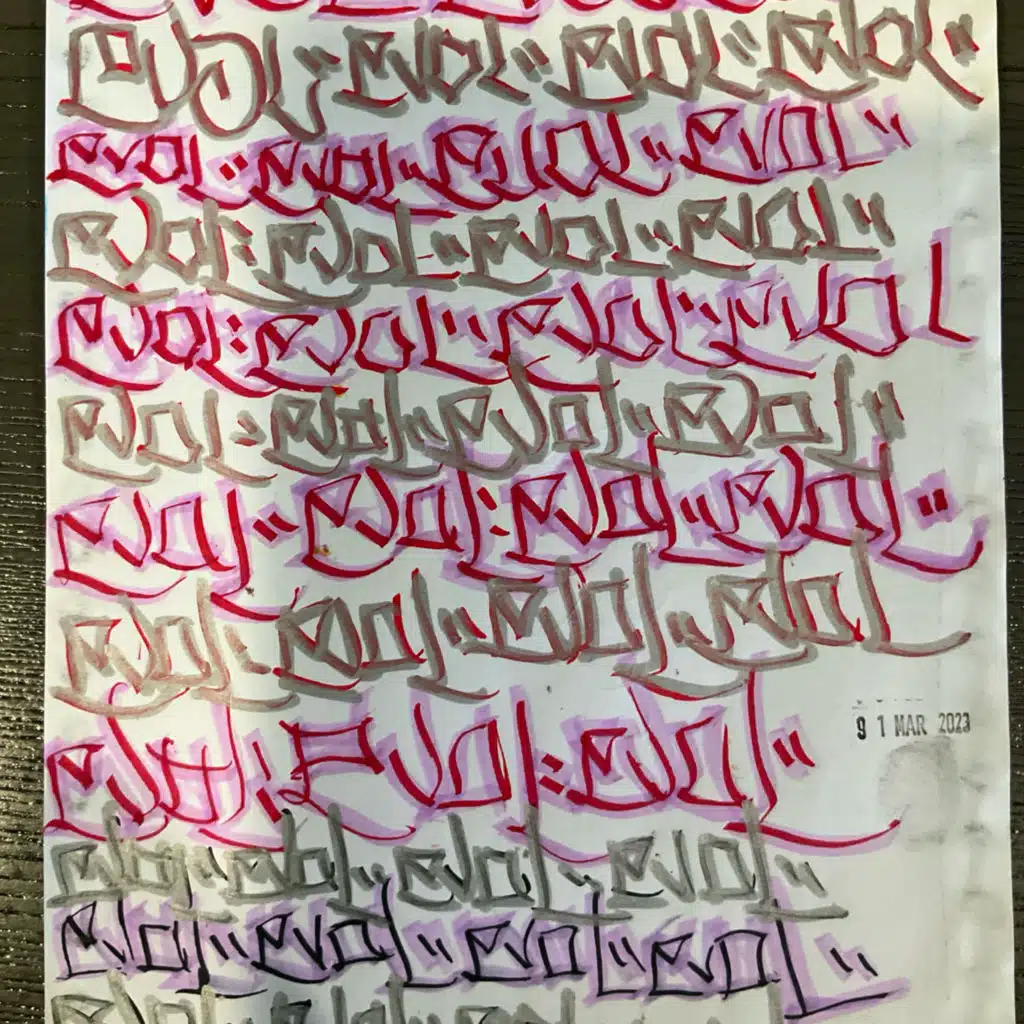 evol" evol" evol" evol"
evol: evol" evol" evol"
evol: evol" evol" evol"
evol: evol" evol" evol
evol: evol" evol" evol"
evol" evol: evol" evol"
evol: evol" evol" evol
evol: evol: evol"
91 MAR 2023
evol" evol" evol" evol"
evol" evol" evol" evol"